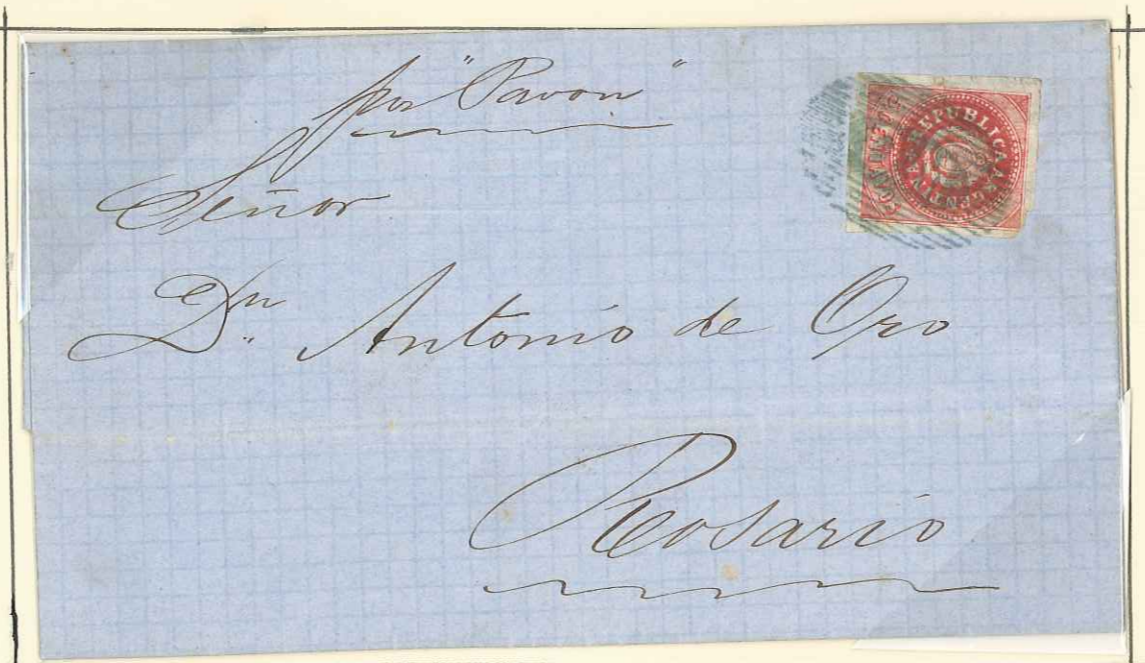 por "Pavon"
Señor
Dn. Antonio de Oro
Rosario
REPUBLICA ARGENTINA
CENTAVOS